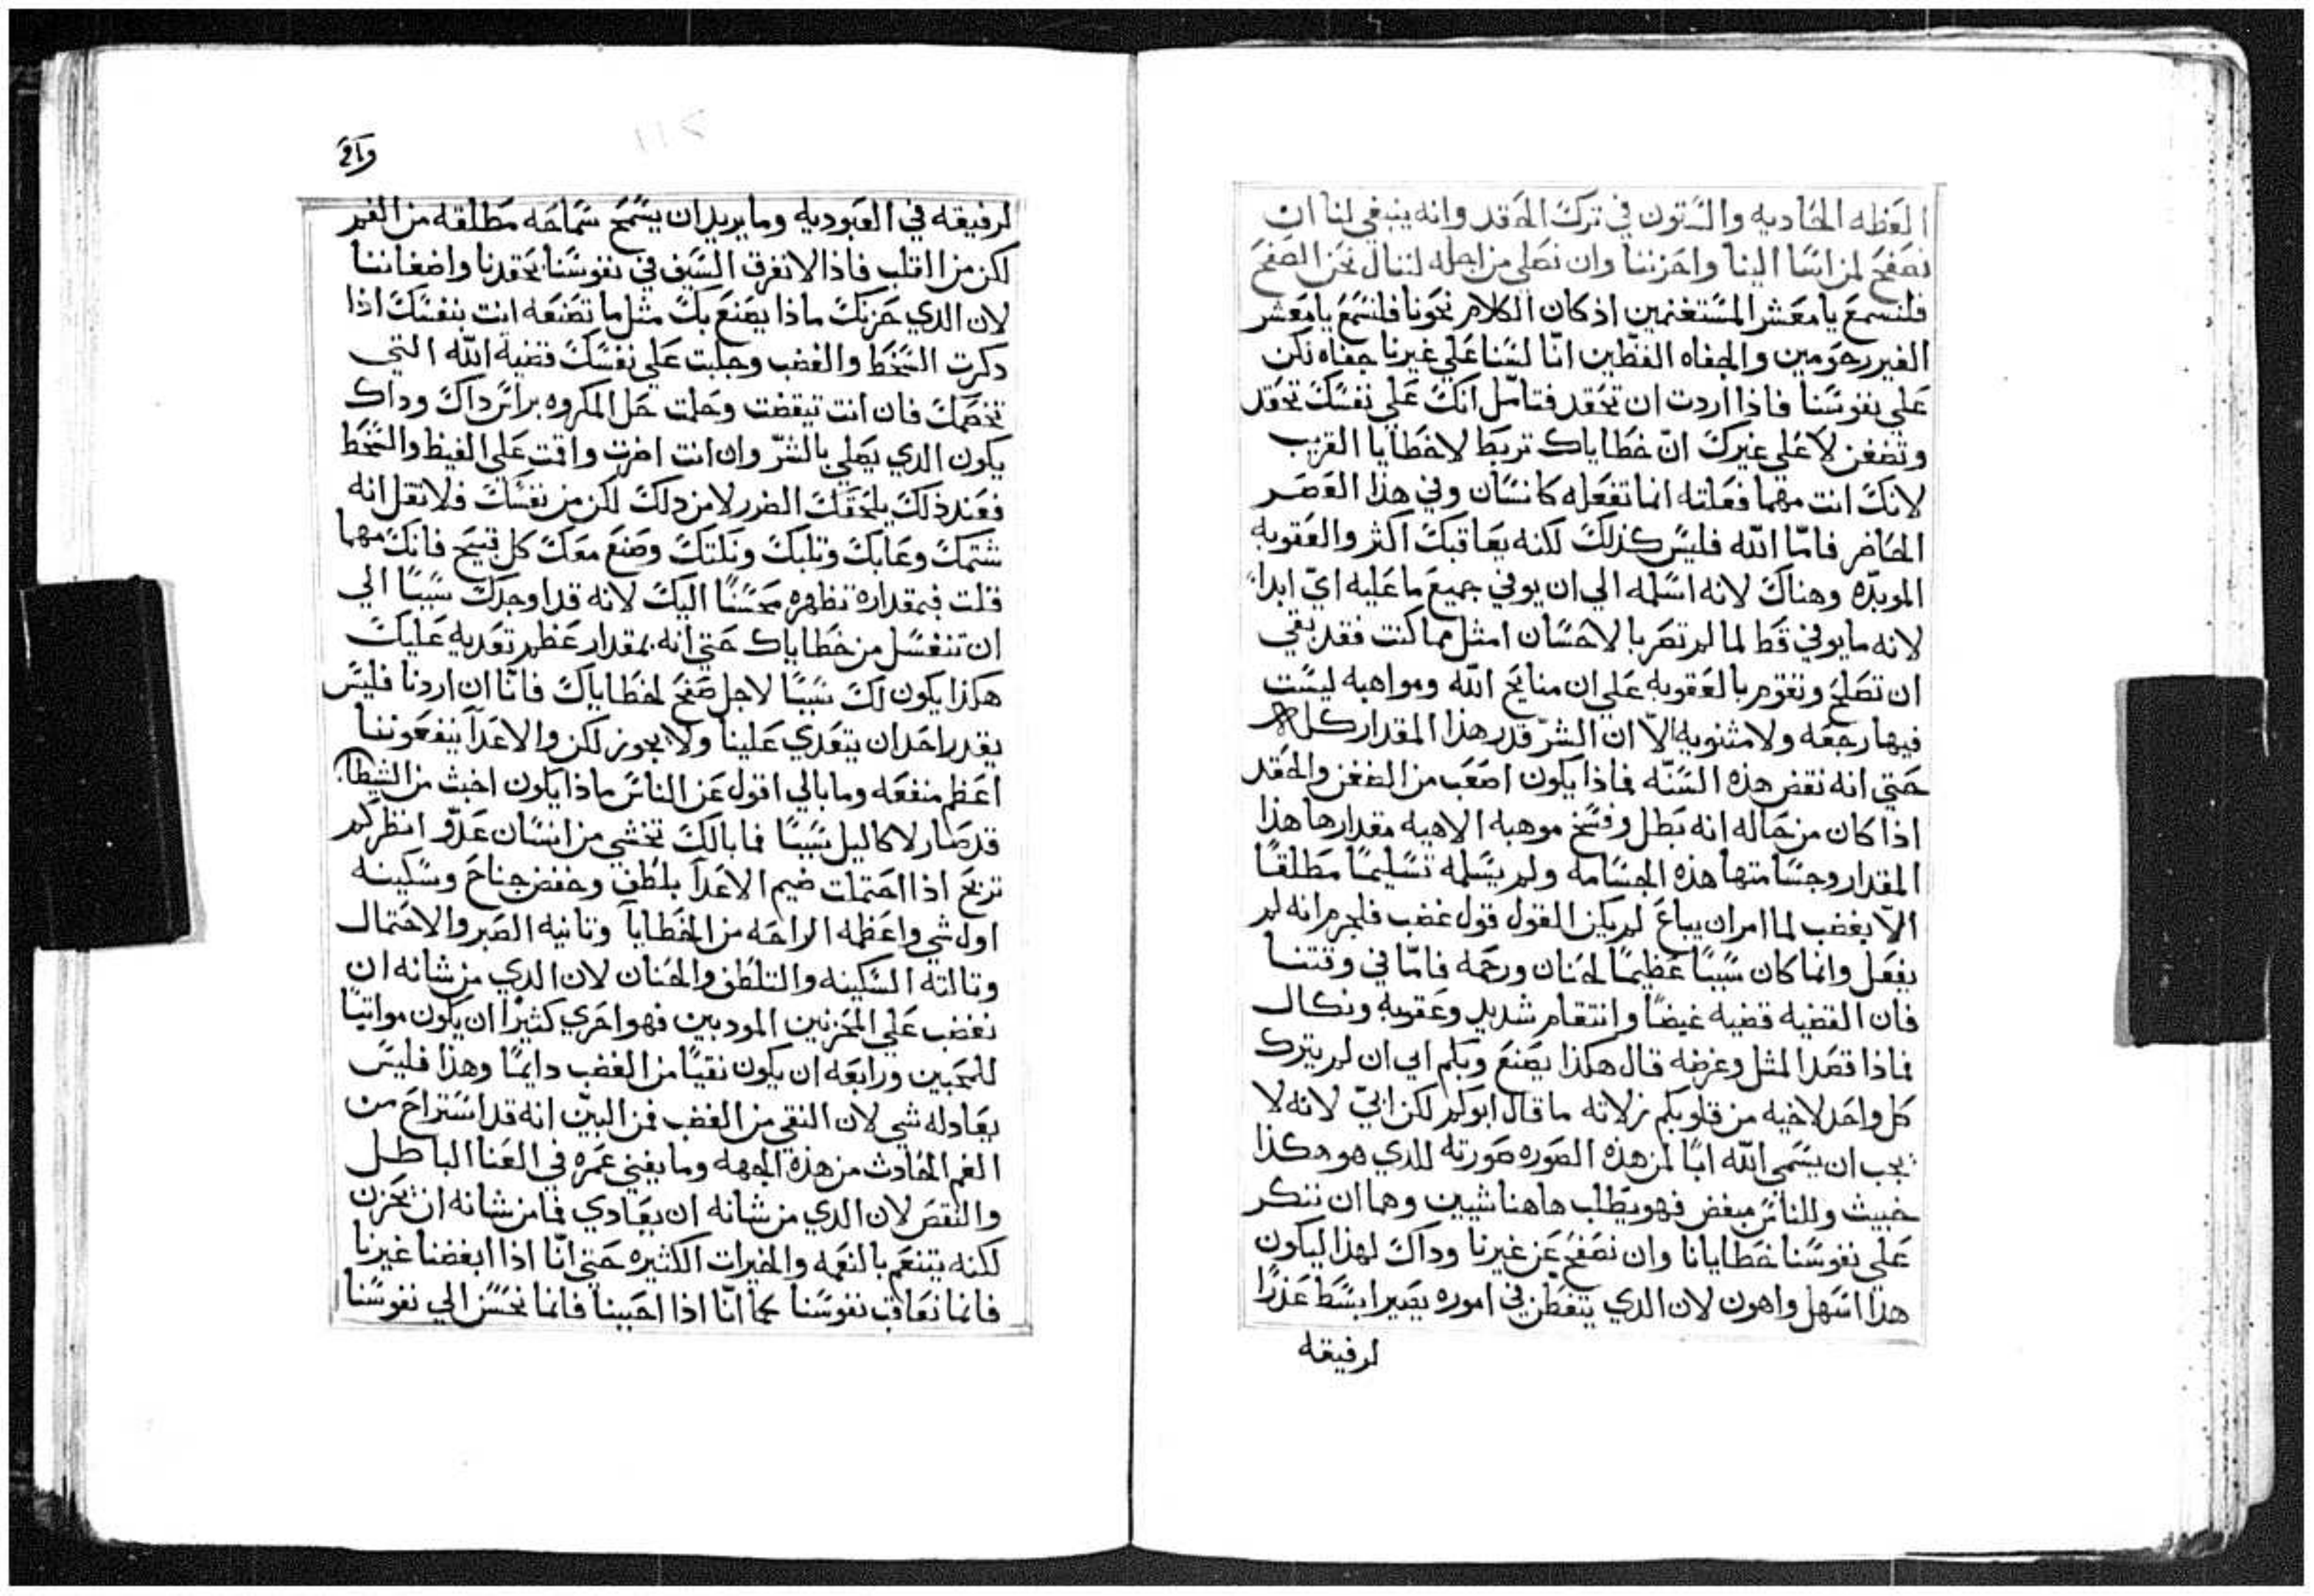 العظه الحاديه والستون في ترك الحقد وانه ينبغي لنا ان
نصفح لمن اسا الينا واحزننا وان نصلي من اجله لننال نحن الصفح
فلنسمع يا معشر المستغنمين اذ كان الكلام نحونا فلنسمع يا معشر
الغير رحومين والجفاه الفظين انّا لسنا علي غيرنا جفاه لكن
علي نفوسنا فاذا اردت ان تحقد فتامّل انك علي نفسك تحقد
وتضغن لا علي غيرك انّ خطاياك تربط لا خطايا القريب
لانك انت مهما فعلته انما تفعله كانسان وفي هذا العصر
الحاضر فامّا الله فليس كذلك لكنه يعاقبك اكثر والعقوبه
الموبدّه وهناك لانه اسلمه الي ان يوفي جميع ما عليه ايّ ابداً
لانه ما يوفي قط لما لم تصر بالاحسان امثل مما كنت فقد بقي
ان تصلح وتقوم بالعقوبه علي ان منايح الله ومواهبه ليست
فيها رجعه ولا مثنويه الّا ان الشرّ قدر هذا المقدار كله
حتي انه نقض هذه السنّه فماذا يكون اصعب من الضغن والحقد
اذا كان من حاله انه بطل وفسخ موهبه الاهيه مقدارها هذا
المقدار وجسامتها هذه الجسامه ولم يسلمه تسليماً مطلقاً
الّا بغضب لما امر ان يباع لم يكن القول قول غضب فلجرم انه لم
يفعل وانما كان سبباً عظيماً لحنان ورحمه فامّا في وقتنا
فان القضيه قضيه غيضاً وانتقام شديد وعقوبه ونكال
فماذا قصد المثل وغرضه قال هكذا يصنع وبكم ابي ان لم يترك
كل واحد لاخيه من قلوبكم زلاته ما قال ابوكم لكن ابيّ لانه لا
يجب ان يسمي الله اباً لمن هذه الصوره صورته للذي هو هكذا
خبيث وللناس مبغض فهو يطلب هاهنا شيين وهما ان ننكر
علي نفوسنا خطايانا وان نصفح عن غيرنا وداك لهذا ليكون
هذا اسهل واهون لان الدي يتفطن في اموره يصير ابسط عذراً
لرفيقه
واق
لرفيقه في العبوديه وما يريد ان يسمح سماحه مطلقه من الفم
لكن من القلب فاذا لا نفرق السيف في نفوسنا بحقدنا واضغاننا
لان الدي حزنك ماذا يصنع بك مثل ما تصنعه انت بنفسك اذا
دكرت السخط والغضب وجلبت علي نفسك قضيه الله التي
تخصمك فان انت تيقضت وحلمت حل المكروه براس داك وداك
يكون الدي يصلي بالشرّ وان انت اضرت واقمت علي الغيظ والسخط
فعند ذلك يلحقك الضرر لا من دلك لكن من نفسك فلا تقل انه
شتمك وعابك وثلبك ونلتك وصنع معك كل قبيح فانك مهما
قلت فبمقداره تظهره محسناً اليك لانه قد اوجدك سبباً الي
ان تنغسل من خطاياك حتي انه بمقدار عظم تعديه عليك
هكذا يكون لك سبباً لاجل صفح لخطاياك فانّا ان اردنا فليس
يقدر احد ان يتعدي علينا ولا يجوز لكن والاعدآ ينفعوننا
اعظم منفعه وما بالي اقول عن الناس ماذا يكون اخبث من الشيطان
قد صار لاكاليل سبباً فما بالك تخشي من انسان عدوّ انظر كم
تربح اذا احتملت ضيم الاعدآ بلطف وخفض جناح وسكينه
اول شي واعظمه الراحه من الخطايآ وتانيه الصبر والاحتمال
وتالته السكينه والتلطف والحنان لان الدي من شانه ان
نغضب علي المحزنين المودبين فهو احري كثيراً ان يكون مواتياً
للمحبين ورابعه ان يكون نقياً من الغضب دايماً وهذا فليس
يعادله شي لان النقي من الغضب فمن البيّن انه قد استراح من
الغم الحادث من هذه الجهه وما يفني عمره في العنا الباطل
والنقص لان الدي من شانه ان يعادي فما من شانه ان يحزن
لكنه يتنعم بالنعمه والخيرات الكثيره حتي انّا اذا ابغضنا غيرنا
فانما نعاقب نفوسنا كما انّا اذا احببنا فانما نحسن الي نفوسنا